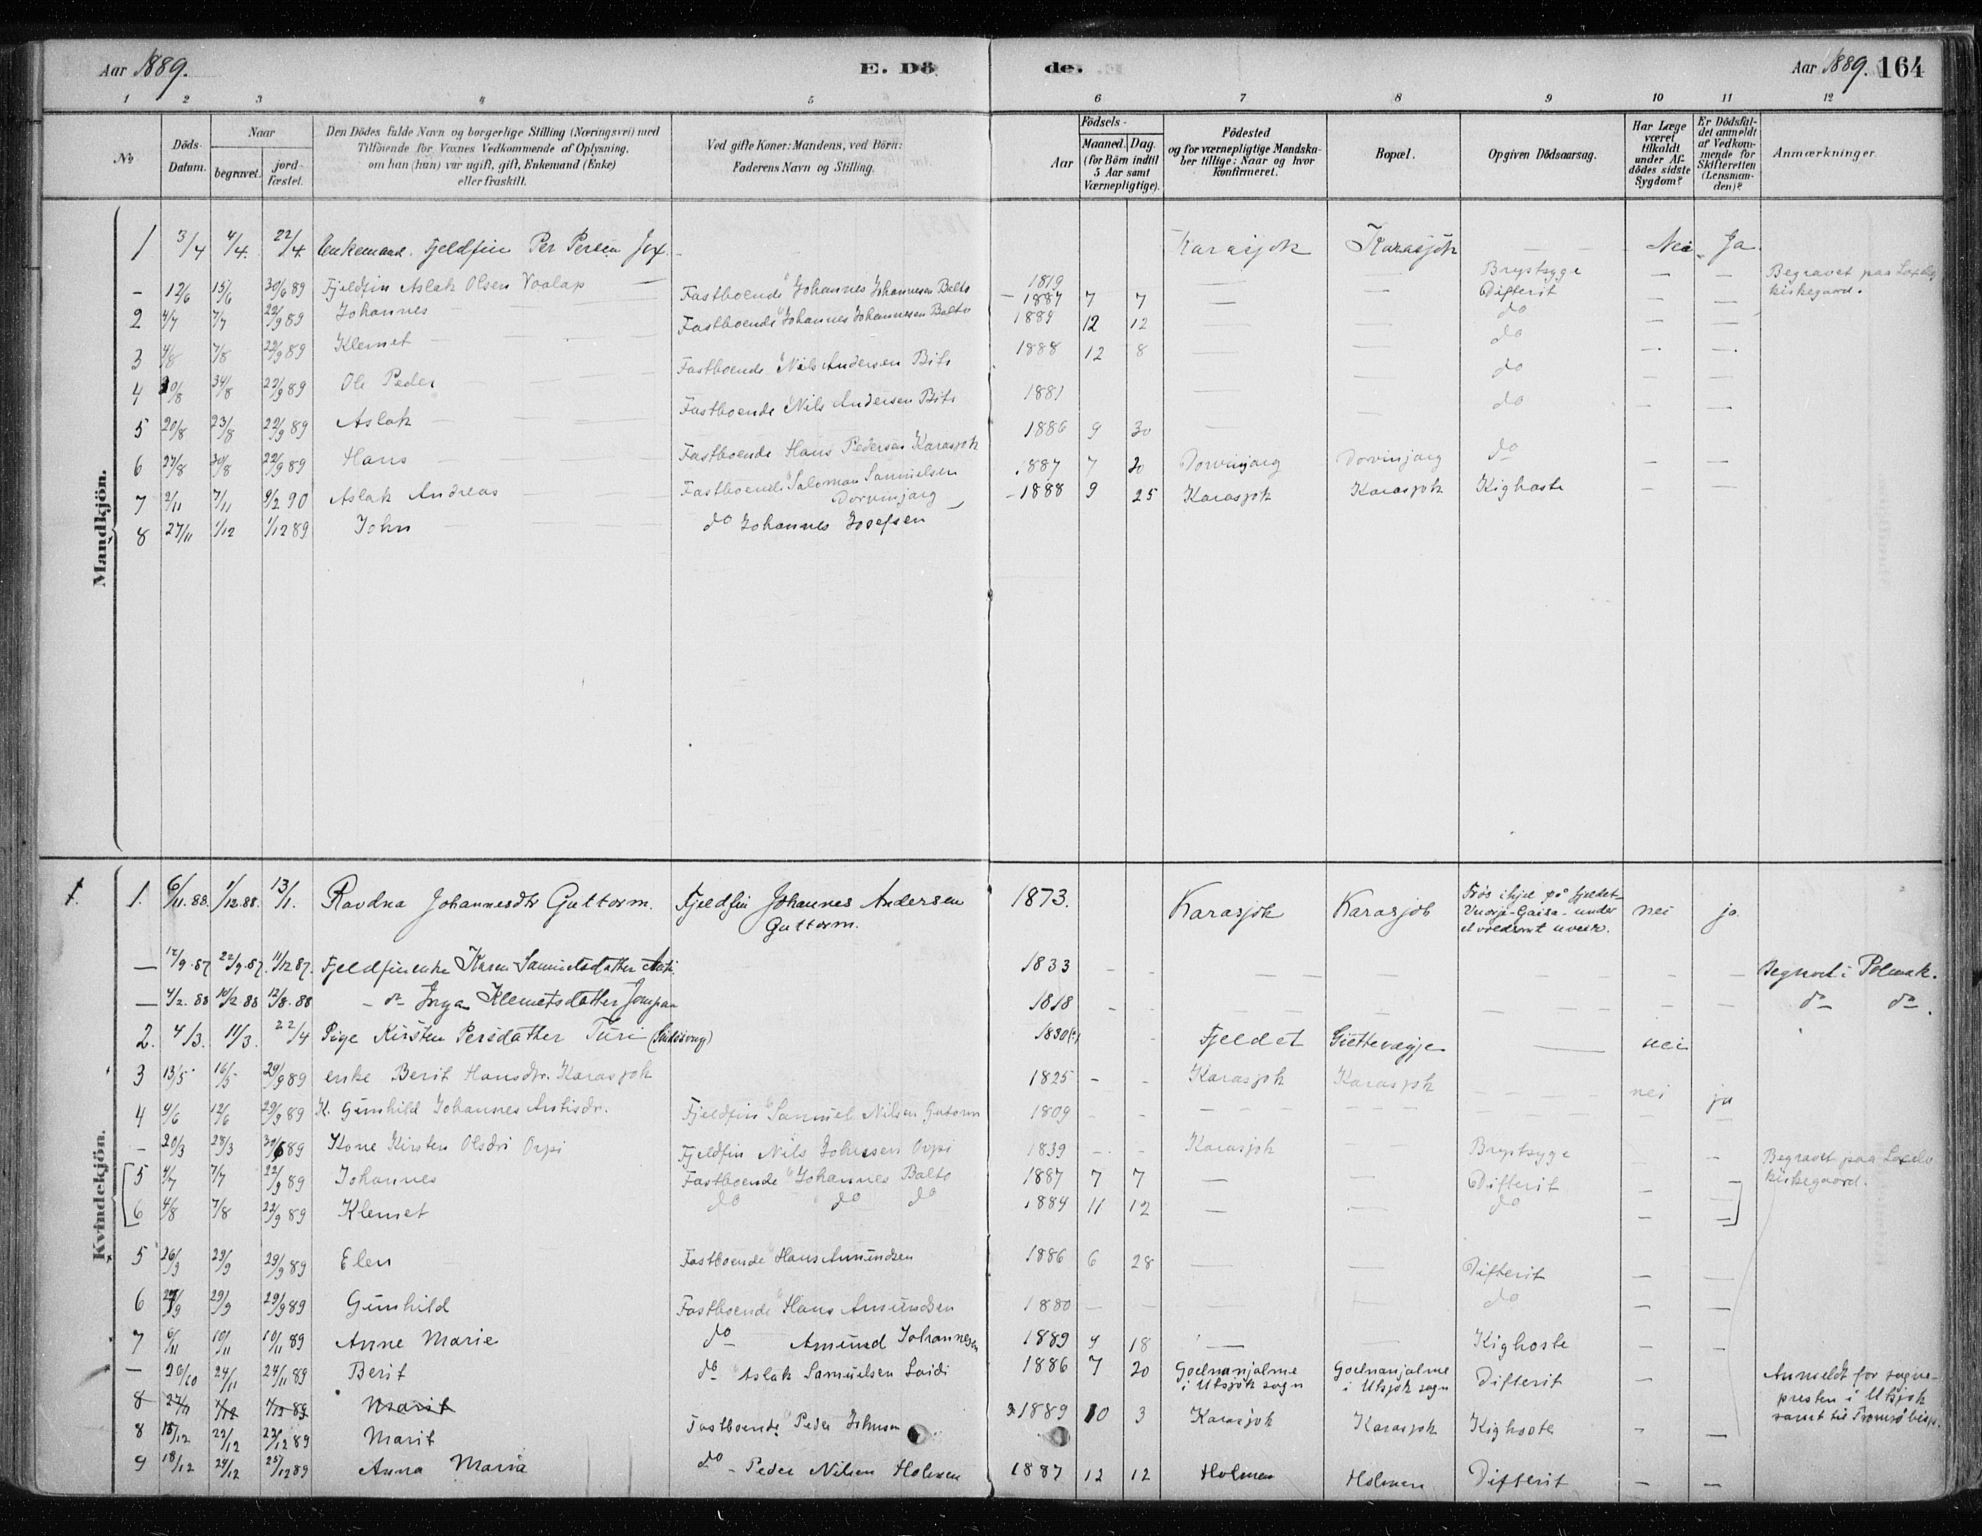 Aar 1889. E. Dö
de. Aar 1889. 164
1 2 3 4 5 6 7 8 9 10 11 12
No
Döds-Datum.
Naar
begravet.
jord-fæstet.
Den Dödes fulde Navn og borgerlige Stilling (Næringsvei) med
Tilföiende for Voxnes Vedkommende af Oplysning,
om han (hun) var ugift, gift, Enkemand (Enke)
eller fraskilt.
Ved gifte Koner: Mandens, ved Börn:
Faderens Navn og Stilling.
Födsels-
Aar
Maaned. Dag.
(for Börn indtil
5 Aar samt
Værnepligtige).
Födested
og for værnepligtige Mandska-
ber tillige: Naar og hvor
Konfirmeret.
Bopæl.
Opgiven Dödsaarsag.
Har Læge
været
tilkaldt
under Af-
dödes sidste
Sygdom?
Er Dödsfal-
det anmeldt
af Vedkom-
mende for
Skifteretten
(Lensman-
den)?
Anmærkninger.
Mandkjön.
1 3/4 4/4. 22/4. Enkemand. Fjeldfin Per Persen - Karasjok Karasjok - Nei Ja.
- 12/6 15/6 30/6 89 Fjeldfin Aslak Olsen Vaalap 1819 - - Brystsyge - - Begravet paa Laxelv kirkegaard.
2 4/7 7/7 22/9 89 Johannes - Fastboende Johannes Johannesen Balto 1887 7 7 - - Difterit - -
3 4/8 7/8 22/9 89 Klemet - Fastboende Johannes Johannesen Balto 1884 12 12 - - do - -
4 20/8 24/8 22/9 89 Ole Peder Fastboende Nils Andersen Biti 1888 12 8 - - do - -
5 20/8 23/8 22/9 89 Aslak - Fastboende Nils Andersen Biti 1881 - - do - -
6 27/8 30/8 22/9 89 Hans - Fastboende Hans Pedersen Karasjok 1886 9 30 - - do - -
7 2/11 7/11 9/2 90 Aslak Andreas - Fastboende Saloman Samuelsen Dorvinjarg 1887 7 20 Dorvinjarg Dorvinjarg do - -
8 27/11 1/12 1/12 89 John - do Johannes Josefsen 1888 9 25 Karasjok Karasjok Kighoste - -
Kvindekjön.
1. 6/11.88. 1/12.88. 13/1. Ravdna Johannesdtr Guttorm. Fjeldfin Johannes Andersen Guttorm. 1873. Karasjok Karasjok Frøs ihjel på fjeldet Vuorje-Gaisa-under et voldsomt uveir. nei ja
- 12/9.87. 22/9.87. 11/12 87. Fjeldfinenke Karen Samuelsdatter 1833 - - Begravet i Polmak.
- 4/2.88 10/2 88 12/8.88 - do Inga Klemetsdatter 1818 - - do do
2. 4/3. 11/3. 22/4 Pige Kirsten Persdatter Turi 1830(?) Fjeldet - nei
3 13/5 16/5 29/9 89 enke Berit Hansdtr. Karasjok 1825 - - Karasjok Karasjok nei ja
4 9/6 12/6 29/9 89 K. Gunhild Johannes Antisdr. Fjeldfin Samuel Nilsen Gutorm 1809 - -
- 20/3 28/3 30/6 89 Kone Kirsten Olsdri Orpi Fjeldfin Nils Johnsen Orpi 1839 - - Karasjok - Brystsyge - Begravet paa Laxelv kirkegaard.
5 4/7 7/7 22/9 89 Johannes Fastboende Johannes Balto 1887 7 7 - Difterit - -
6 4/8 7/8 22/9 89 Klemet do do do 1884 11 12 - - do - -
5 26/9 29/9 29/9 89 Elen Fastboende Hans Amundsen 1886 6 28 - - Difterit - -
6 27/9 29/9 29/9 89 Gunhild Fastboende Hans Amundsen 1880 - - - - do - -
7 6/11 10/11 10/11 89 Anne Marie do Amund Johannesen 1889 4 18 - Kighoste - -
- 20/10 24/11 24/11 89 Berit do Aslak Samuelsen Laidi 1886 7 20 Goelnanjalme i Utsjok sogn Goelnanjalme i Utsjok sogn Difterit - Anmeldt for sogne-presten i Utsjok samt til Tromsø bisp.
8 27/11 1/12 1/12 89 Marit
8 18/12 22/12 22/12 89 Marit Fastboende Peder Johnsen 1889 10 3 Karasjok Karasjok Kighoste - -
9 18/12 24/12 25/12 89 Anna Maria do - Peder Nilsen Holmen 1887 12 12 Holmen Holmen Difterit - -